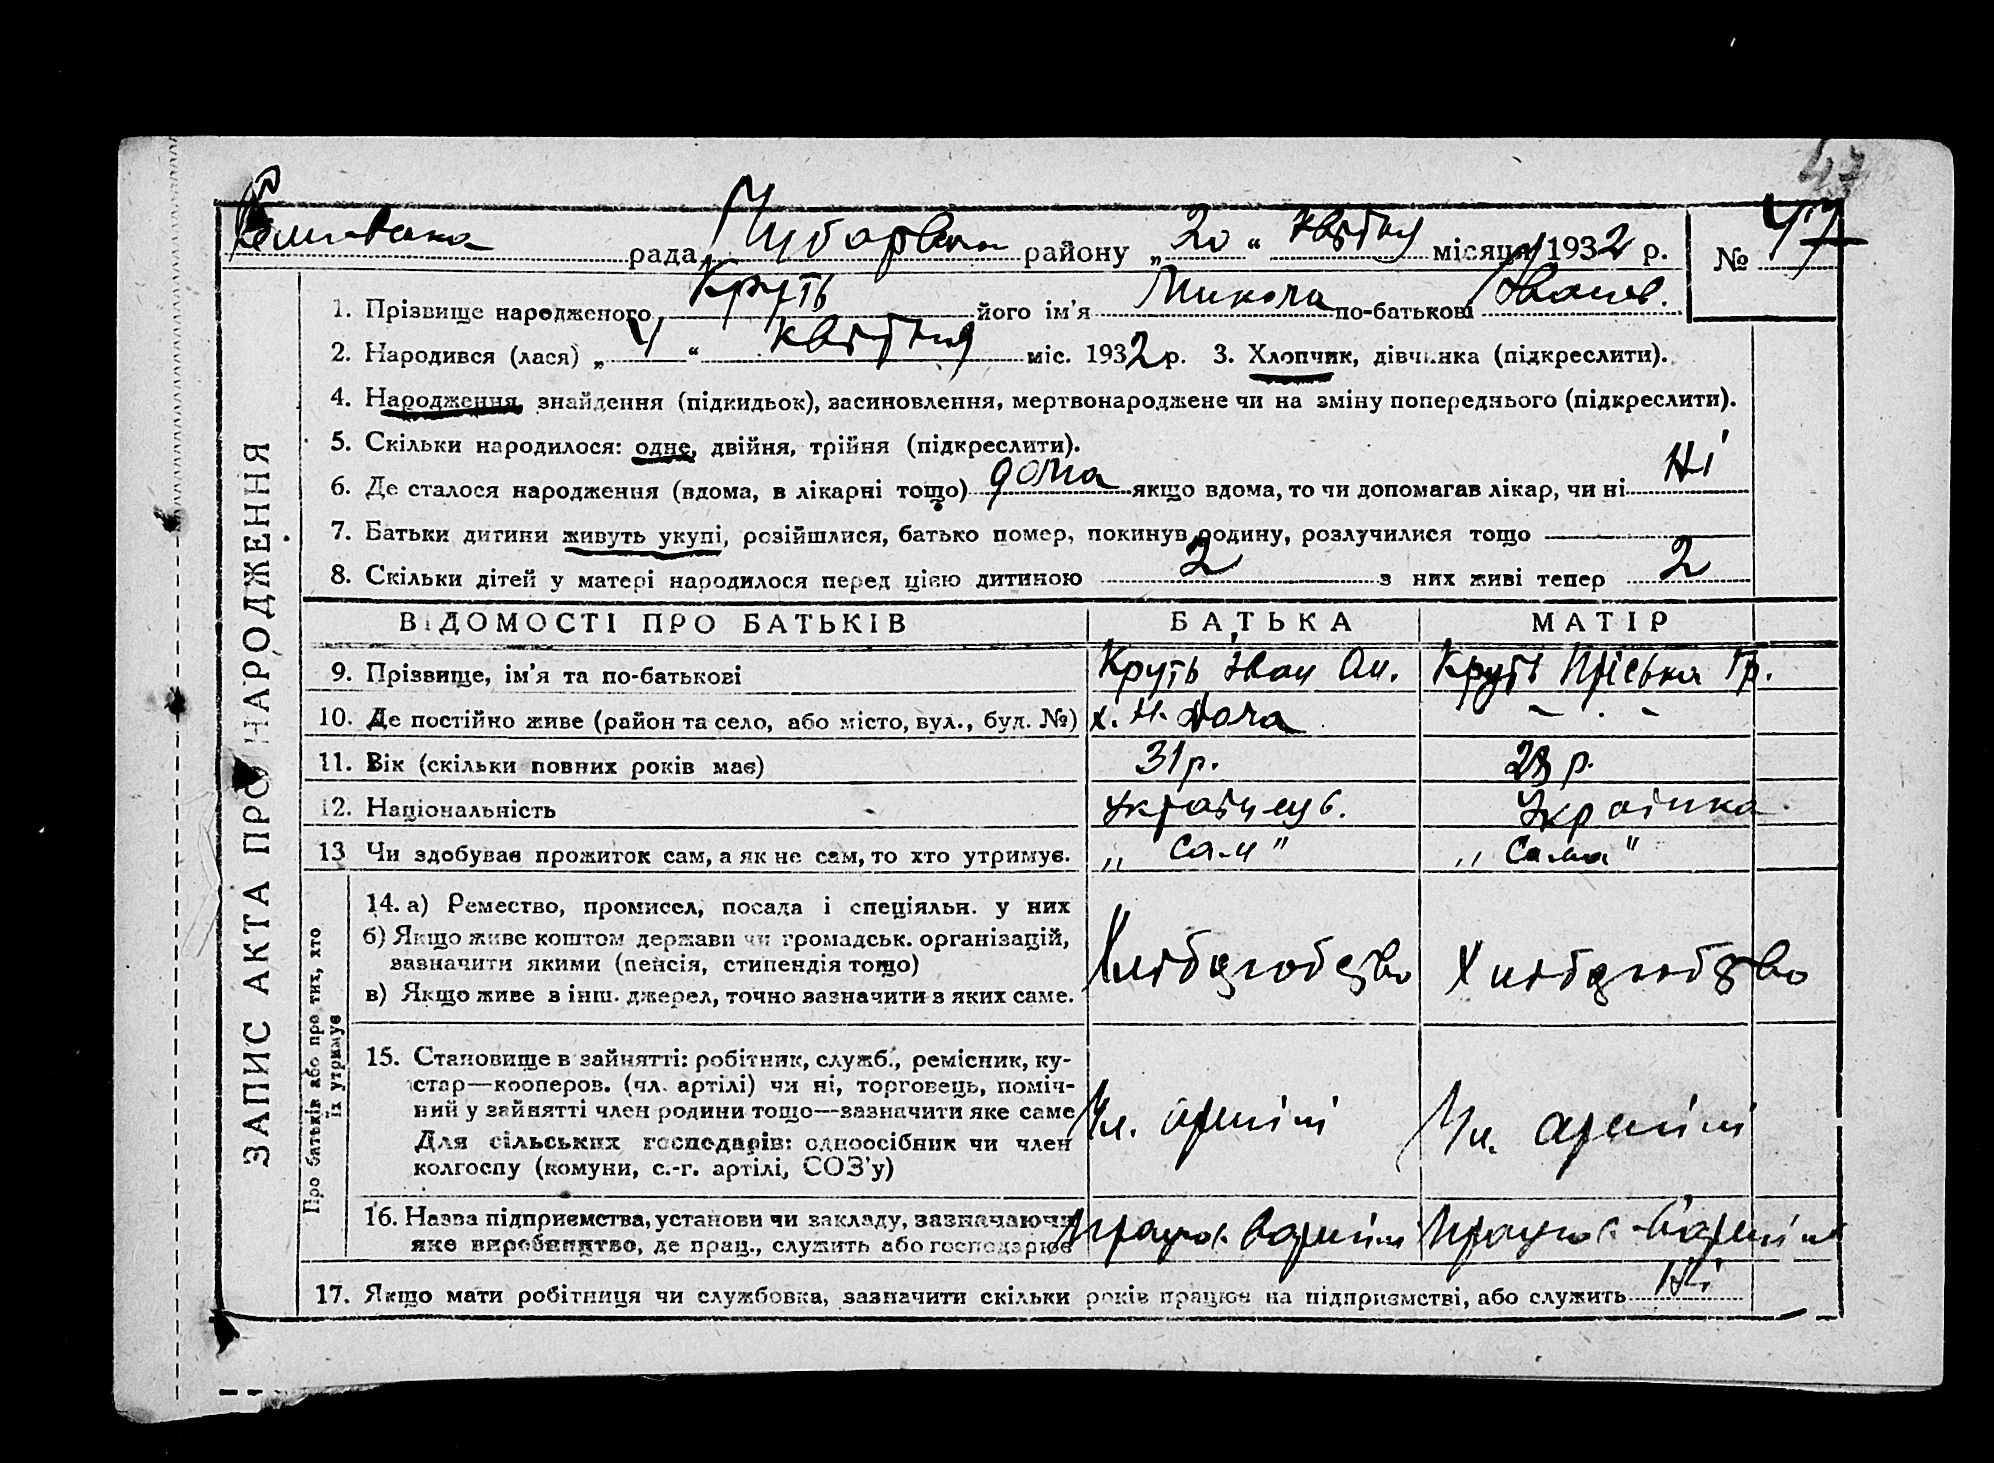 47
рада, Чубарівськ району „ 20 “ квітня місяця 1932 р. № 47
1. Прізвище народженого Круть його ім'я Микола по-батькові Іванов.
2. Народився (лася) „ 4 “ квітня міс. 1932 р. 3. Хлопчик, дівчинка (підкреслити).
4. Народження, знайдення (підкидьок), засиновлення, мертвонароджене чи на зміну попереднього (підкреслити).
5. Скільки народилося: одне, двійня, трійня (підкреслити).
6. Де сталося народження (вдома, в лікарні тощо) дома якщо вдома, то чи допомагав лікар, чи ні Ні
7. Батьки дитини живуть укупі, розійшлися, батько помер, покинув родину, розлучилися тощо
8. Скільки дітей у матері народилося перед цією дитиною 2 з них живі тепер 2
ВІДОМОСТІ ПРО БАТЬКІВ БАТЬКА МАТІР
9. Прізвище, ім'я та по-батькові Круть Іван Ан. Круть Пріська Гр.
10. Де постійно живе (район та село, або місто, вул., буд. №) х. Н. Доча - . -
11. Вік (скільки повних років має) 31 р. р.
12. Національність Українець. Українка
13 Чи здобував прожиток сам, а як не сам, то хто утримує. „ сам " „ сама "
14. а) Ремество, промисел, посада і спеціяльн. у них
б) Якщо живе коштом держави чи громадськ. організацій,
зазначити якими (пенсія, стипендія тощо) Хліборобство Хліборобство
в) Якщо живе з інш. джерел, точно зазначити з яких саме.
15. Становище в зайнятті: робітник, служб., ремісник, ку-
стар—кооперов. (чл. артілі) чи ні, торговець, поміч-
ний у зайнятті член родини тощо—зазначити яке саме Чл. артілі Чл. артілі
Для сільських господарів: одноосібник чи член
колгоспу (комуни, с.-г. артілі, СОЗ'у)
16. Назва підприємства, установи чи закладу, зазначаючи
яке виробництво, де прац., служить або господарює Працює в артілі Працює в артілі
17. Якщо мати робітниця чи службовка, зазначити скільки років працює на підприємстві, або служить Ні
ЗАПИС АКТА ПРО НАРОДЖЕННЯ
Про батьків або про тих, хто
їх утримує